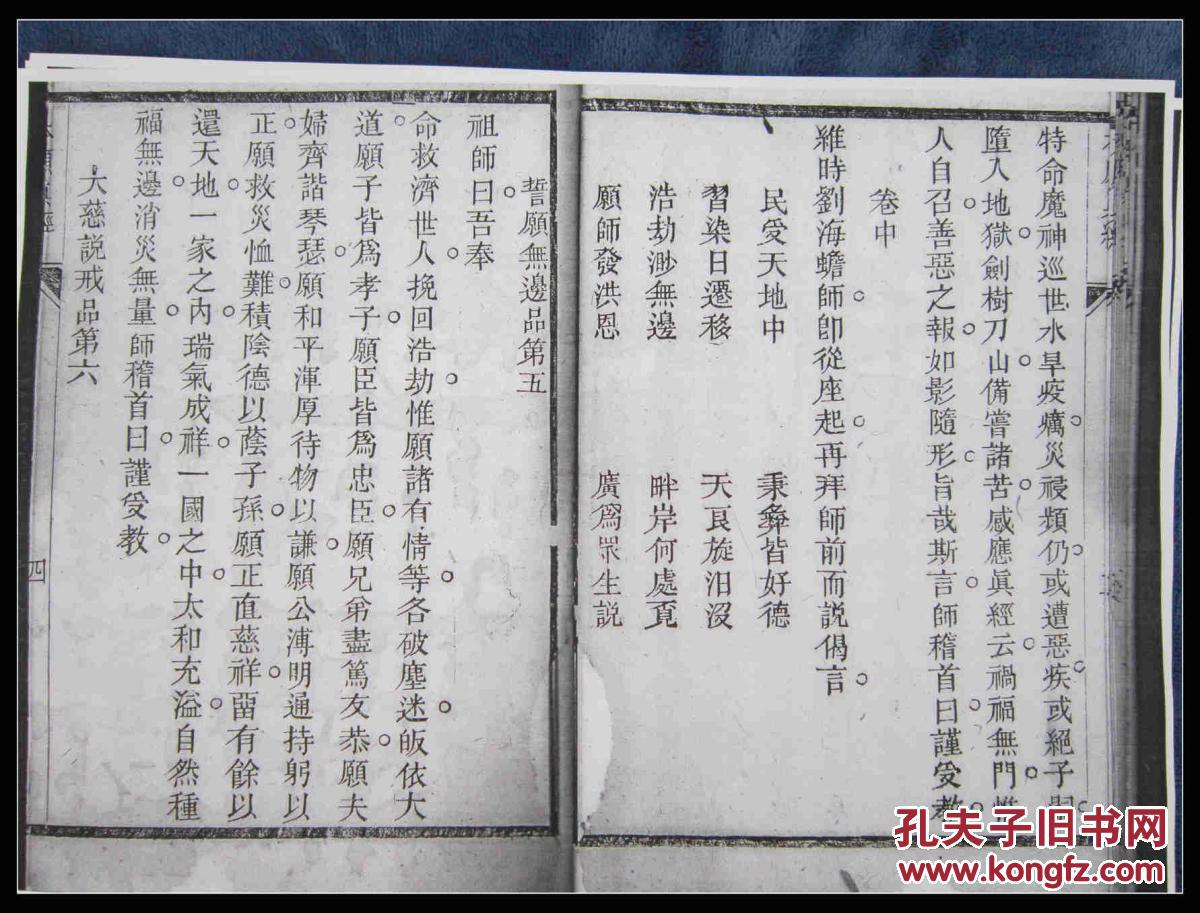 特命魔神巡世水旱疫癘災祲類仍或遭惡疾或絕子嗣
墮入地獄劍樹刀山備嘗諸苦感應眞經云禍福無門惟
人自召善惡之報如影隨形旨哉斯言師稽首曰謹受教
卷中
維時劉海蟾師卽從座起再拜師前而說偈言
民受天地中 秉彝皆好德
習染日遷移 天良旋汨沒
浩劫渺無邊 畔岸何處覓
願師發洪恩 廣爲眾生說
誓願無邊品第五
祖師曰吾奉
命救濟世人挽回浩劫惟願諸有情等各破塵迷皈依大
道願子皆爲孝子願臣皆爲忠臣願兄弟盡篤友恭願夫
婦齊諧琴瑟願和平渾厚待物以謙願公溥明通持躬以
正願救災恤難積陰德以蔭子孫願正直慈祥留有餘以
還天地一家之內瑞氣成祥一國之中太和充溢自然種
福無邊消災無量師稽首曰謹受教
大慈說戒品第六
四
孔夫子旧书网
www.kongfz.com